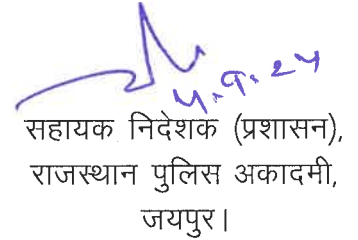 4.9.24
सहायक निदेशक (प्रशासन),
राजस्थान पुलिस अकादमी,
जयपुर।